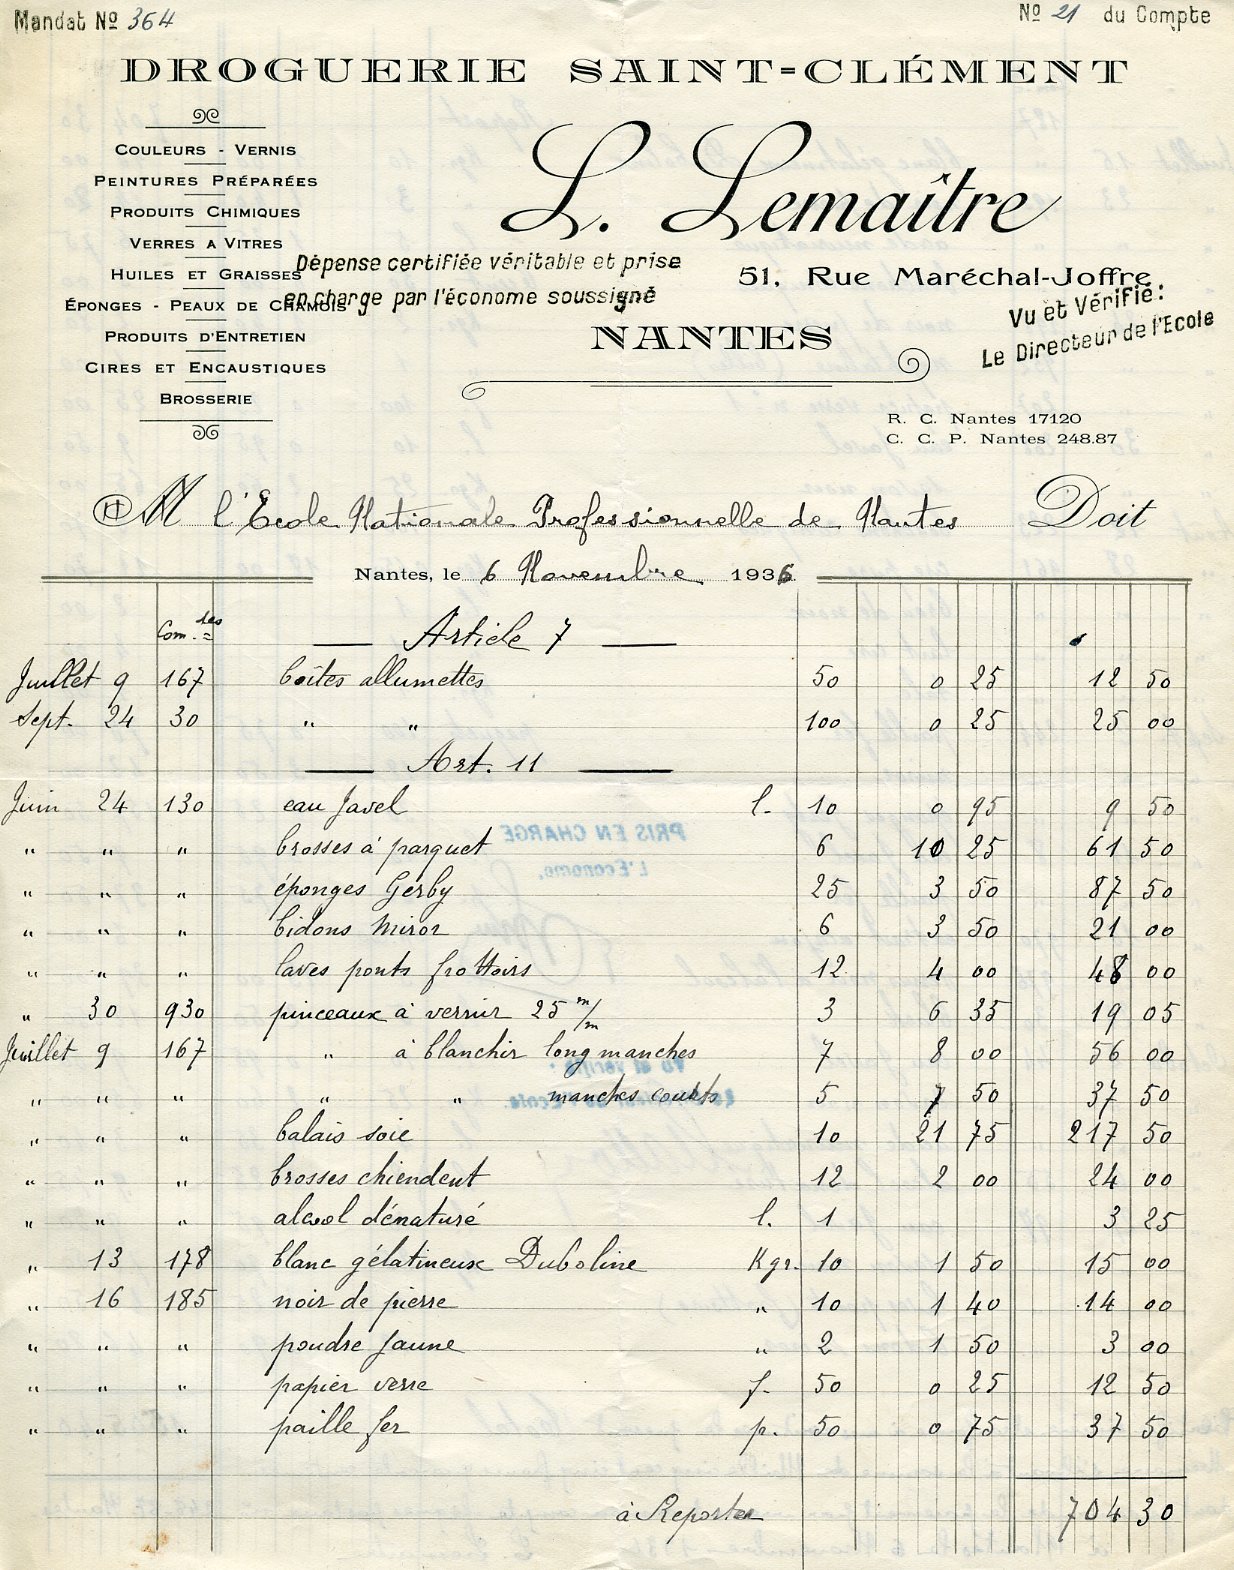 Mandat No 364
No 21 du Compte
DROGUERIE SAINT-CLÉMENT
COULEURS - VERNIS
PEINTURES PRÉPARÉES
PRODUITS CHIMIQUES
VERRES A VITRES
HUILES ET GRAISSES
ÉPONGES - PEAUX DE CHAMOIS
PRODUITS D'ENTRETIEN
CIRES ET ENCAUSTIQUES
BROSSERIE
L. Lemaître
51, Rue Maréchal-Joffre
Dépense certifiée véritable et prise
en charge par l'économe soussigné
NANTES
Vu et Vérifié:
Le Directeur de l'Ecole
R. C. Nantes 17120
C. C. P. Nantes 248.87
M l'Ecole Nationale Professionnelle de Nantes Doit
Nantes, le 6 Novembre 1936
Com.des Article 7
Juillet 9 167 boîtes allumettes 50 0 25 12 50
Sept. 24 30 " " 100 0 25 25 00
Art. 11
Juin 24 130 eau Javel l. 10 0 95 9 50
" " " brosses à parquet 6 10 25 61 50
" " " éponges Gerby 25 3 50 87 50
" " " bidons Miror 6 3 50 21 00
" " " laves ponts frottoirs 12 4 00 48 00
" 30 930 pinceaux à vernir 25 m/m 3 6 35 19 05
Juillet 9 167 " à blanchir long manches 7 8 00 56 00
" " " " " manches courts 5 7 50 37 50
" " " balais soie 10 21 75 217 50
" " " brosses chiendent 12 2 00 24 00
" " " alcool dénaturé l. 1 3 25
" 13 178 blanc gélatineux Duboline Kgr. 10 1 50 15 00
" 16 185 noir de pierre " 10 1 40 14 00
" " " poudre jaune " 2 1 50 3 00
" " " papier verre f. 50 0 25 12 50
" " " paille fer p. 50 0 75 37 50
à Reporter 704 30